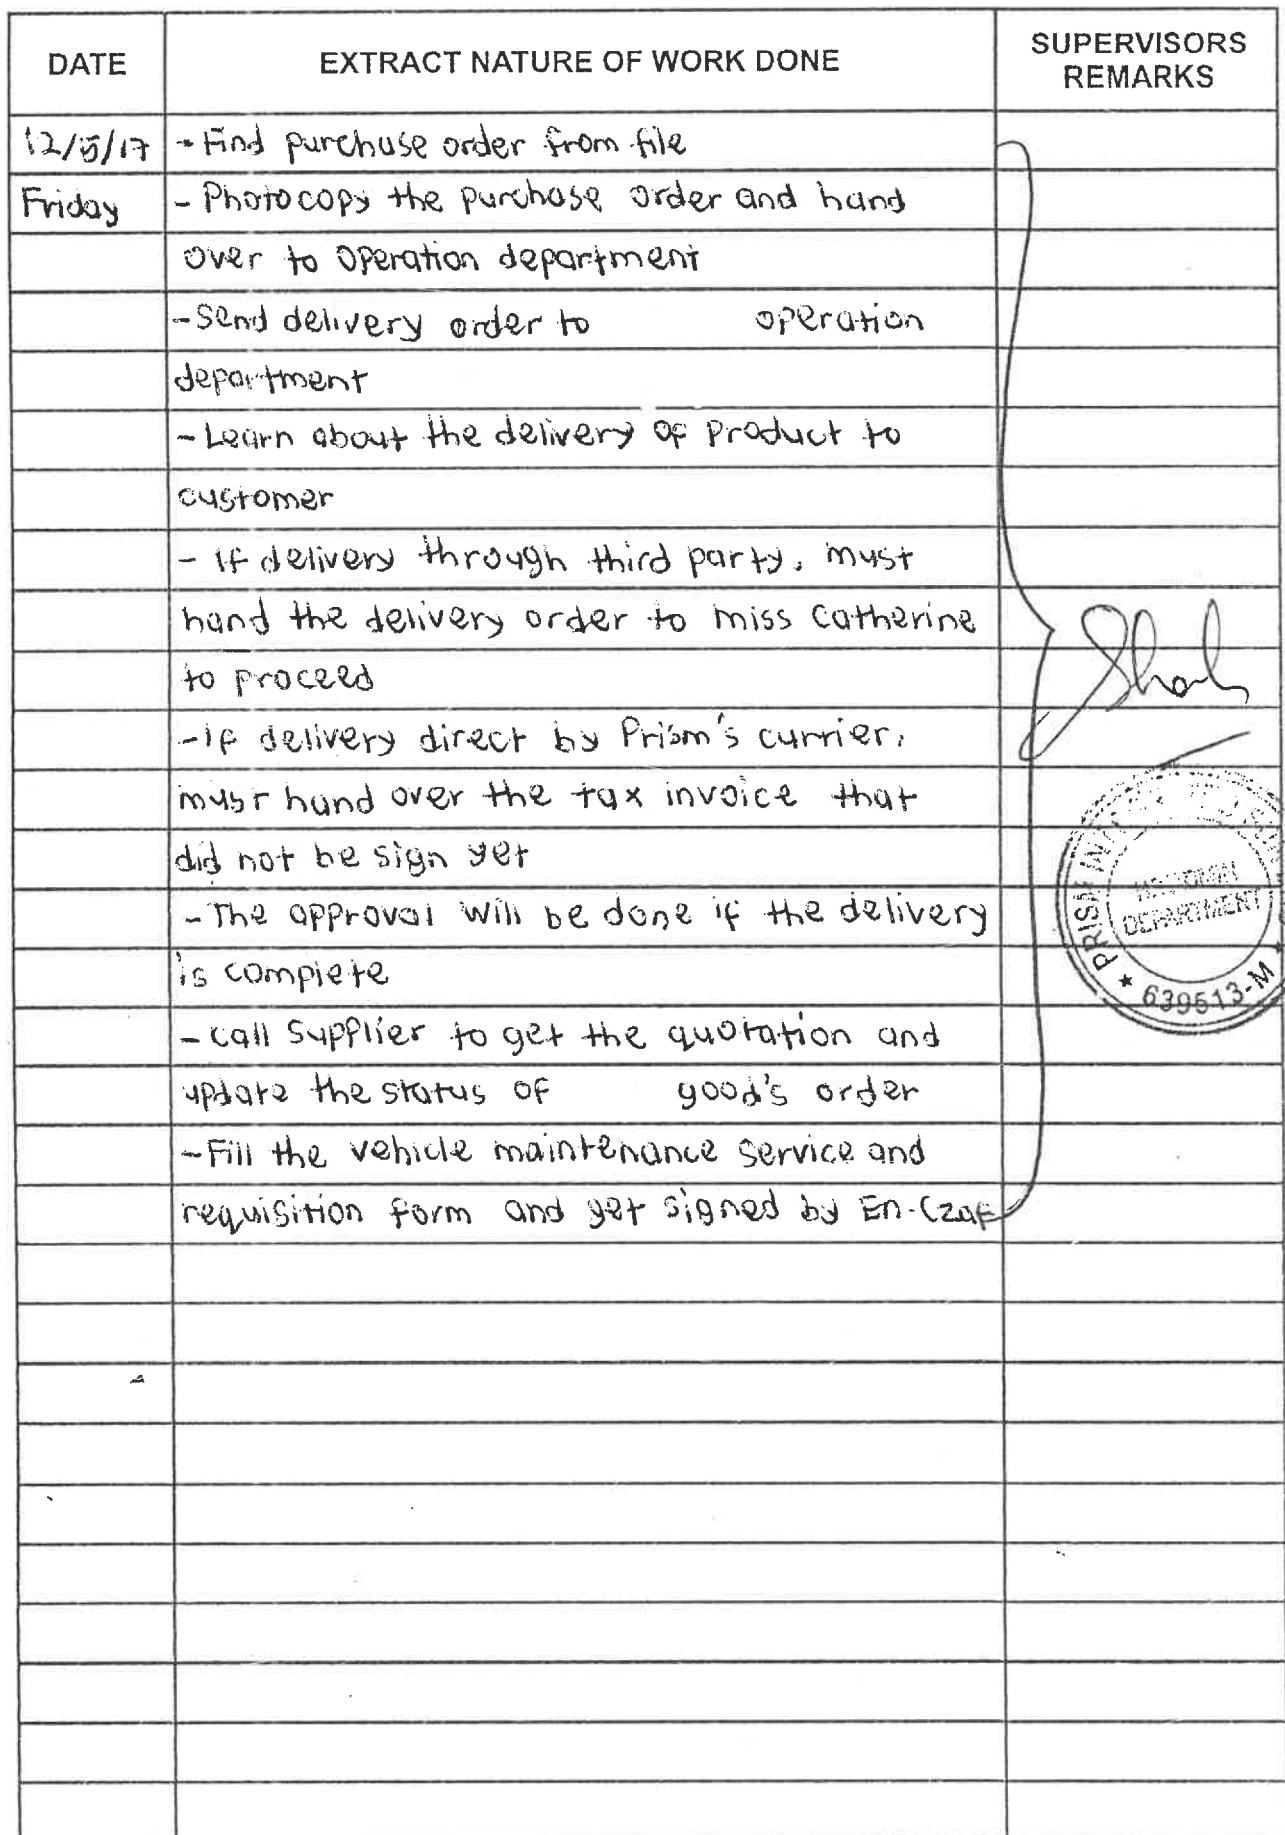 DATE
EXTRACT NATURE OF WORK DONE
SUPERVISORS
REMARKS
12/5/17
- Find purchase order from file
Friday
- Photocopy the purchase order and hand
over to operation department
- Send delivery order to operation
department
- Learn about the delivery of product to
customer
- If delivery through third party, must
hand the delivery order to miss Catherine
to proceed
- If delivery direct by Prism's currier,
must hand over the tax invoice that
did not be sign yet
- The approval will be done if the delivery
is complete
- call supplier to get the quotation and
update the status of good's order
- Fill the vehicle maintenance service and
requisition form and get signed by En.
PRISM
DEPARTMENT
* 639513-M *